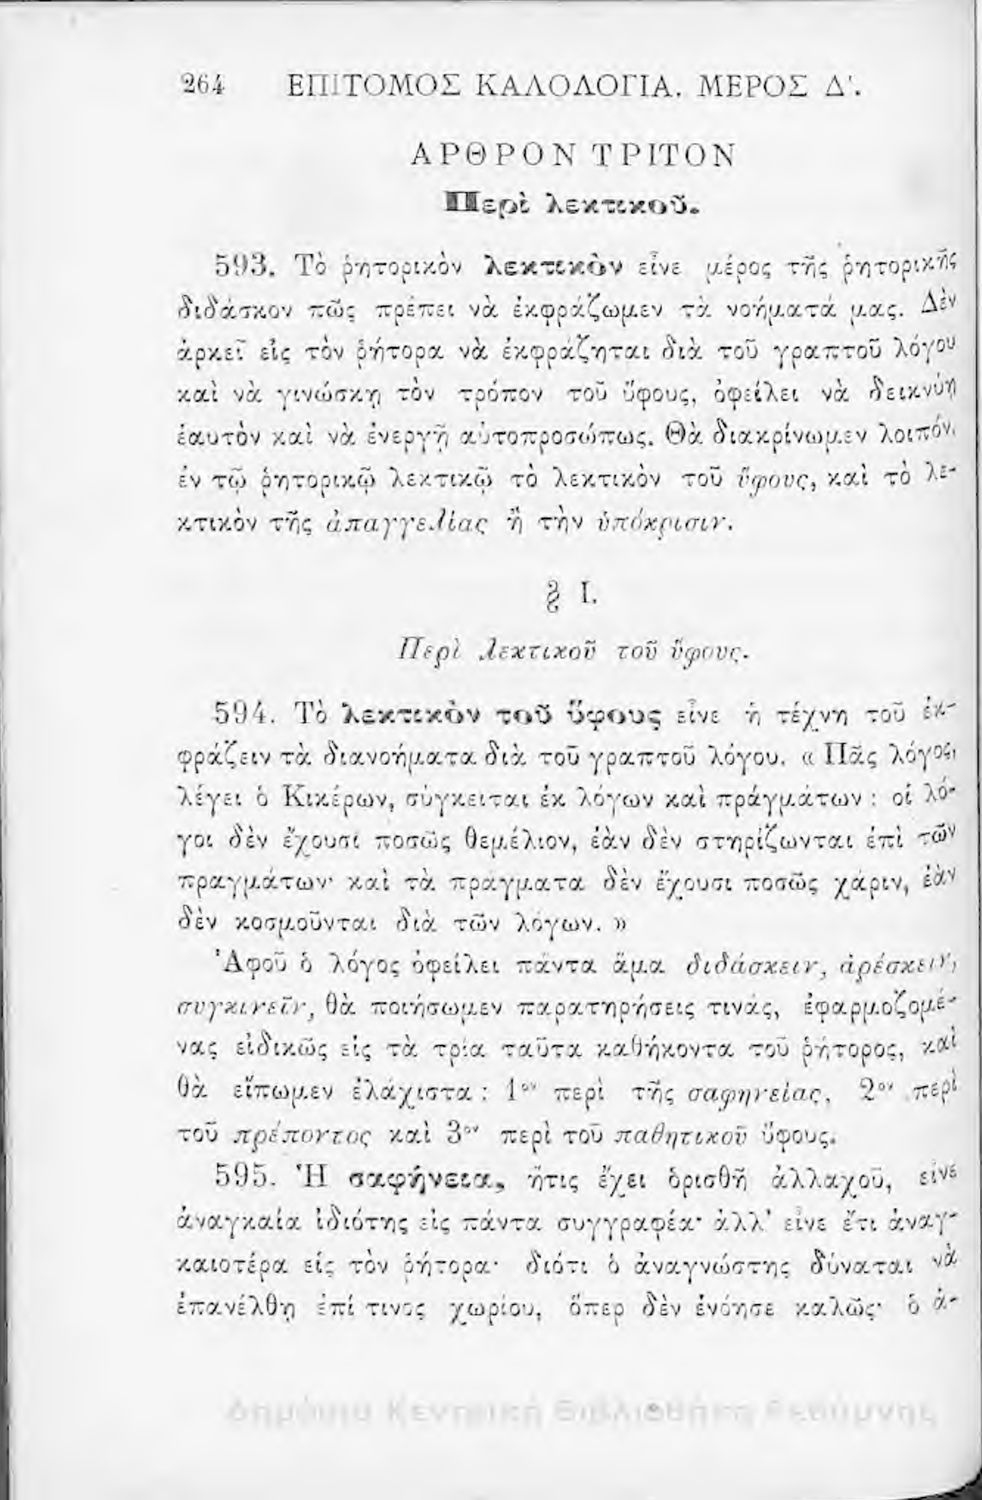 264 ΕΠΙΤΟΜΟΣ ΚΑΛΟΛΟΓΙΑ. ΜΕΡΟΣ Δ'.
ΑΡΘΡΟΝ ΤΡΙΤΟΝ
Περὶ λεκτικοῦ.
593. Τὸ ῥητορικὸν λεκτικὸν εἶνε μέρος τῆς ῥητορικῆς
διδάσκον πῶς πρέπει νὰ ἐκφράζωμεν τὰ νοήματά μας. Δὲν
ἀρκεῖ εἰς τὸν ῥήτορα νὰ ἐκφράζηται διὰ τοῦ γραπτοῦ λόγου
καὶ νὰ γινώσκῃ τὸν τρόπον τοῦ ὕφους, ὀφείλει νὰ δεικνύῃ
ἑαυτὸν καὶ νὰ ἐνεργῇ αὐτοπροσώπως. Θὰ διακρίνωμεν λοιπόν,
ἐν τῷ ῥητορικῷ λεκτικῷ τὸ λεκτικὸν τοῦ ὕφους, καὶ τὸ λε-
κτικὸν τῆς ἀπαγγελίας ἢ τὴν ὑπόκρισιν.
§ I.
Περὶ λεκτικοῦ τοῦ ὕφους.
594. Τὸ λεκτικὸν τοῦ ὕφους εἶνε ἡ τέχνη τοῦ ἐκ-
φράζειν τὰ διανοήματα διὰ τοῦ γραπτοῦ λόγου. « Πᾶς λόγος,
λέγει ὁ Κικέρων, σύγκειται ἐκ λόγων καὶ πράγμάτων : οἱ λό-
γοι δὲν ἔχουσι ποσῶς θεμέλιον, ἐὰν δὲν στηρίζωνται ἐπὶ τῶν
πραγμάτων· καὶ τὰ πράγματα δὲν ἔχουσι ποσῶς χάριν, ἐὰν
δὲν κοσμοῦνται διὰ τῶν λόγων. »
Ἀφοῦ ὁ λόγος ὀφείλει πάντα ἅμα διδάσκειν, ἀρέσκειν,
συγκινεῖν, θὰ ποιήσωμεν παρατηρήσεις τινάς, ἐφαρμοζομέ-
νας εἰδικῶς εἰς τὰ τρία ταῦτα καθήκοντα τοῦ ῥήτορος, καὶ
θὰ εἴπωμεν ἐλάχιστα : 1ον περὶ τῆς σαφηνείας, 2ον περὶ
τοῦ πρέποντος καὶ 3ον περὶ τοῦ παθητικοῦ ὕφους.
595. Ἡ σαφήνεια, ἥτις ἔχει ὁρισθῆ ἀλλαχοῦ, εἶνε
ἀναγκαία ἰδιότης εἰς πάντα συγγραφέα· ἀλλ' εἶνε ἔτι ἀναγ-
καιοτέρα εἰς τὸν ῥήτορα· διότι ὁ ἀναγνώστης δύναται νὰ
ἐπανέλθῃ ἐπί τινος χωρίου, ὅπερ δὲν ἐνόησε καλῶς· ὁ ἀ-
Δημόσια Κεντρική Βιβλιοθήκη Ρεθύμνης